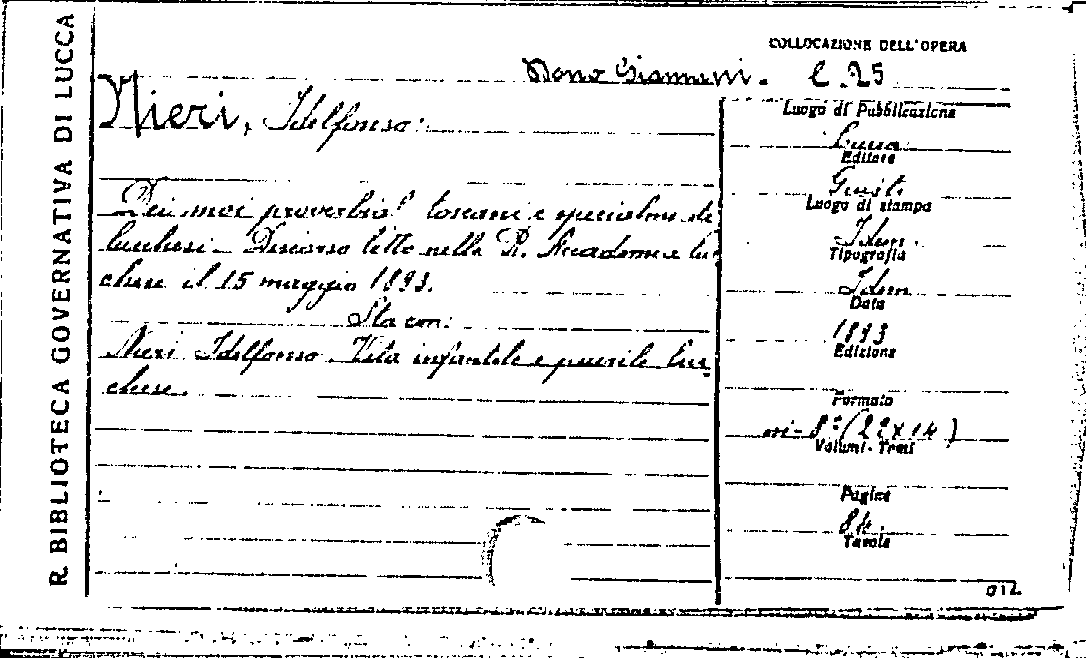 R. BIBLIOTECA GOVERNATIVA DI LUCCA
COLLOCAZIONE DELL'OPERA
Dono Giannini. C. 25
Nieri, Idelfonso:
Dei modi proverbiali toscani e specialmente
lucchesi. Discorso letto nella R. Accademia luc-
chese il 15 maggio 1893.
Sta con:
Nieri Idelfonso. Vita infantile e puerile luc-
chese.
Luogo di Pubblicazione
Lucca
Editore
Giusti
Luogo di stampa
Idem.
Tipografia
Idem
Data
1893
Edizione
Formato
in-8° (22x14)
Volumi - Tomi
Pagine
84.
Tavole
012